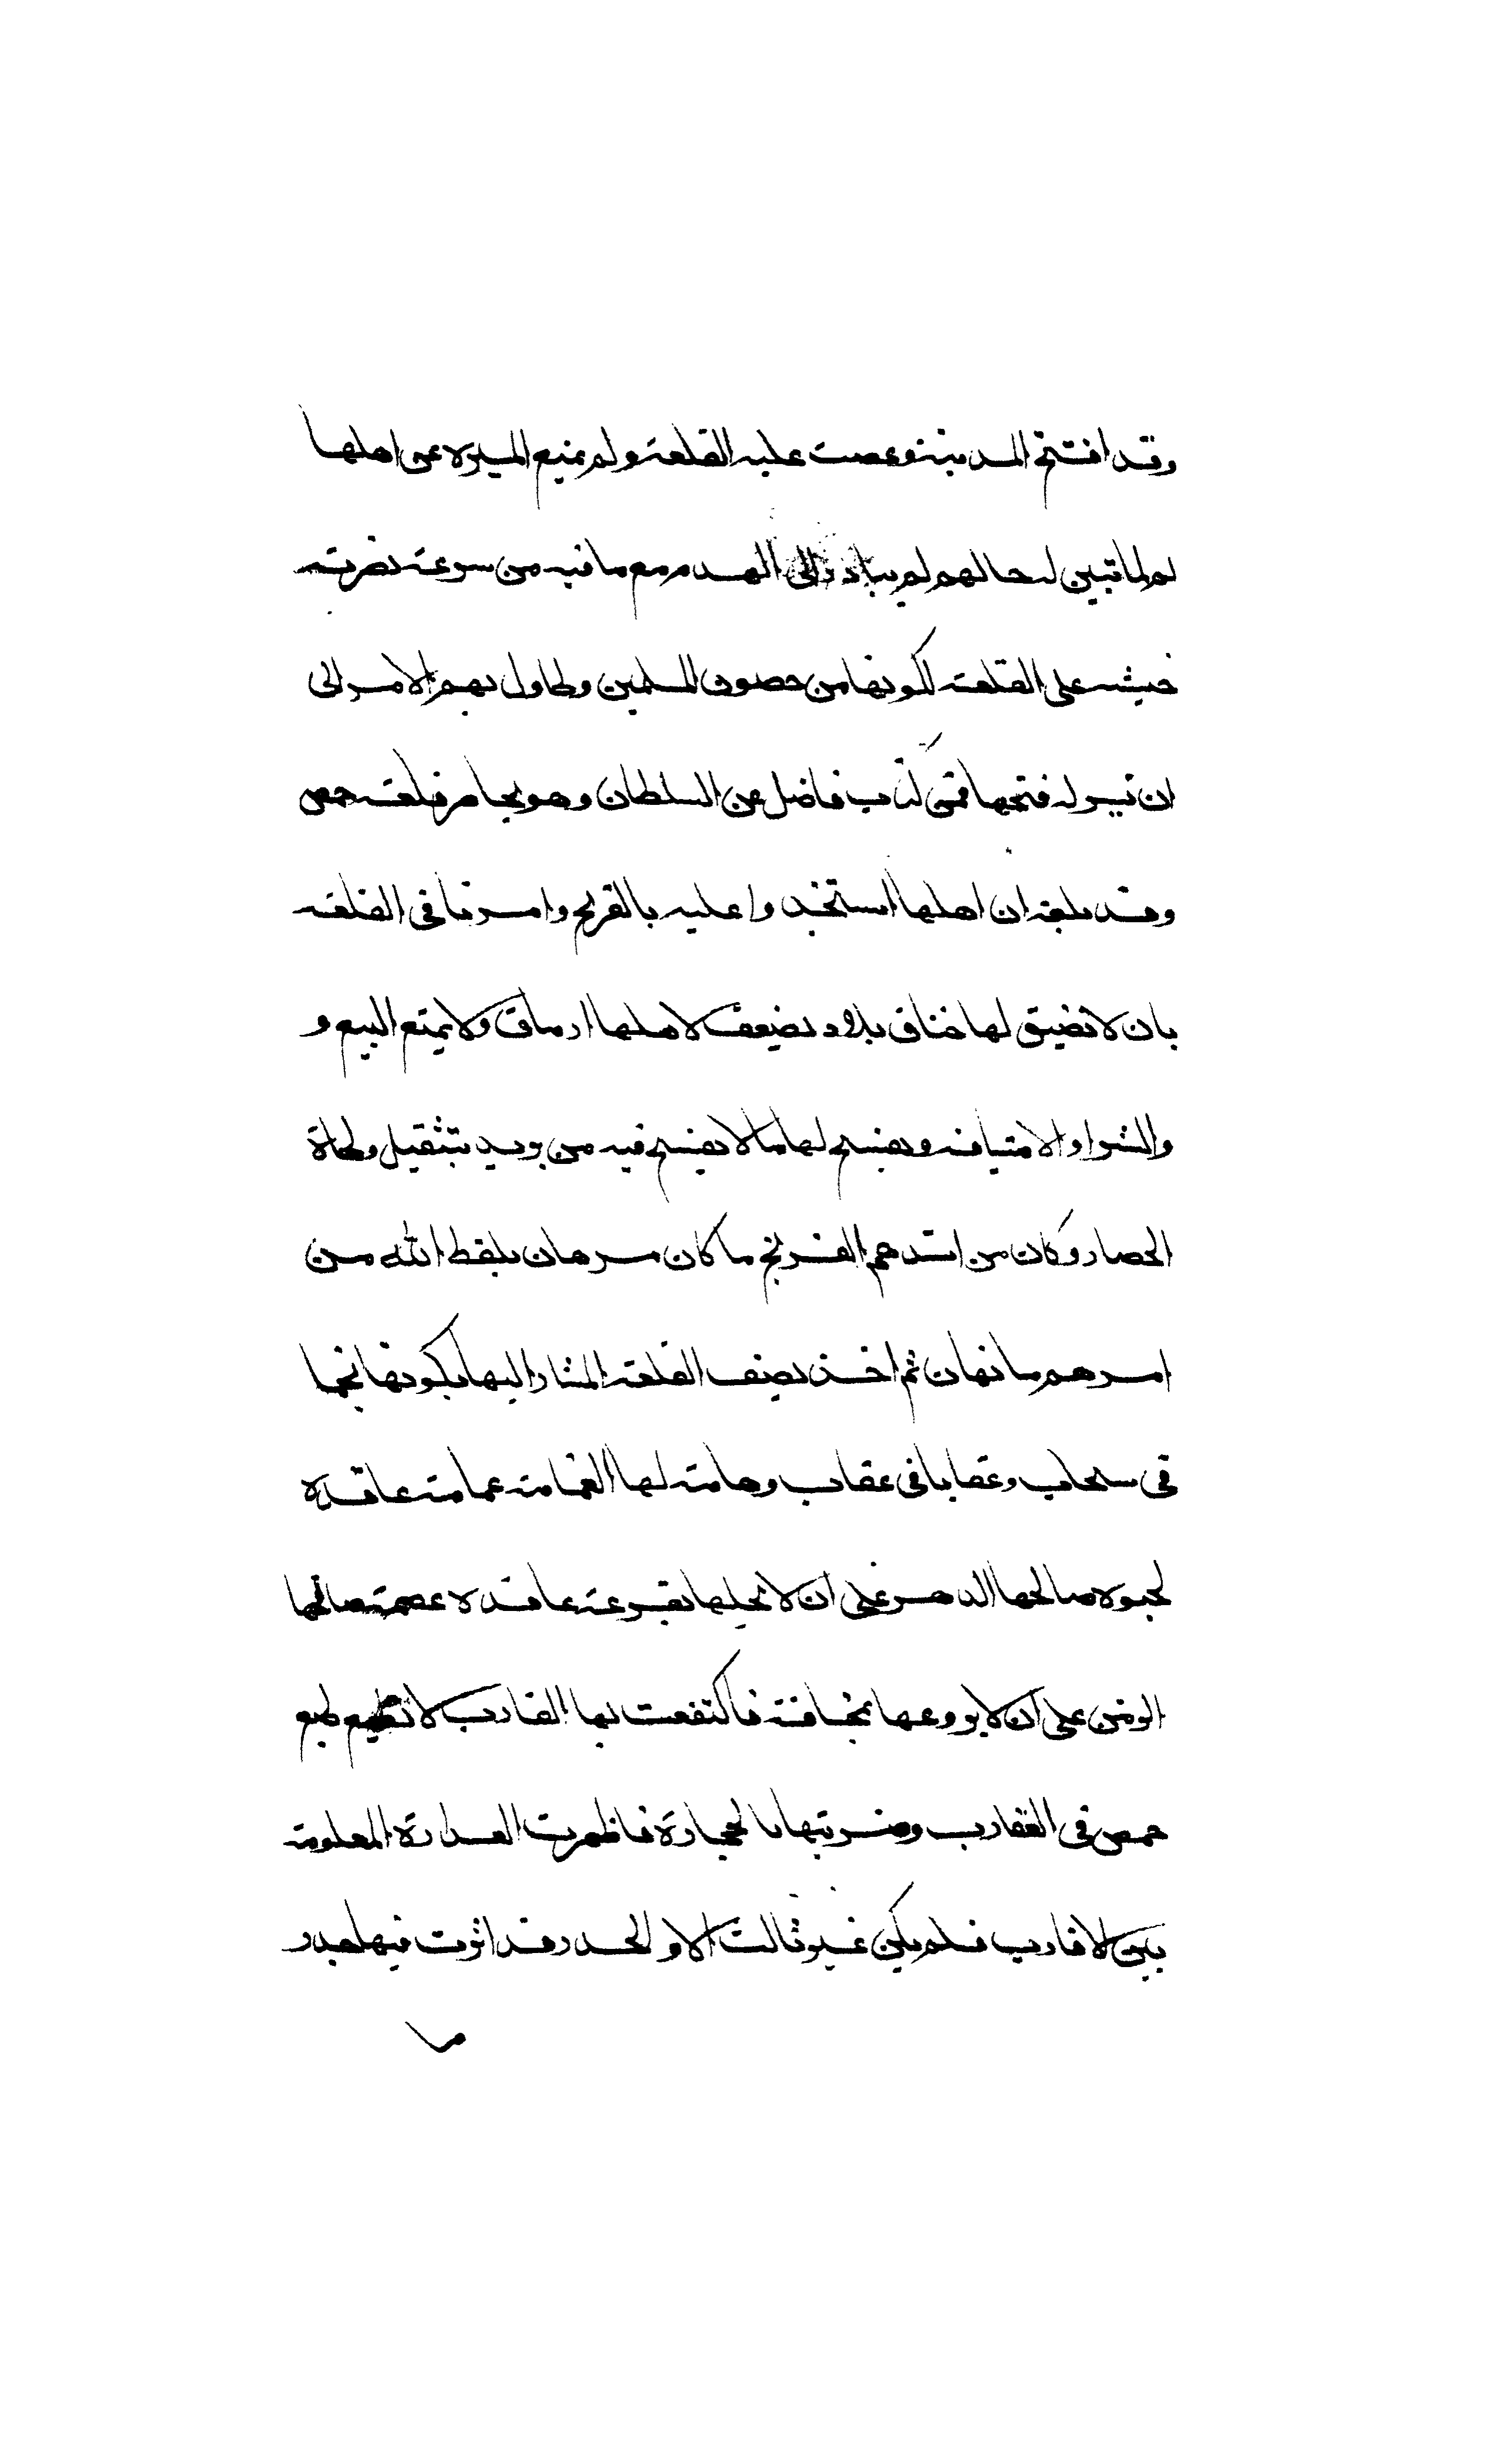 وقد افتتح المدينة وعصت عليه القلعة ولم يمنع الميرة عن اهلها
لم لما تبين لحالهم لم يبادر الى الهدم مع ما فيه من سرعة نضرته
خيشه على القلعة لكونها من حصون المسلمين وطاول بهم الامر الى
ان تيسر له فتحها فمن كتاب فاضل عن السلطان وهو يحاصر قلعة حمص
وقد بلغه ان اهلها استنجدوا عليه بالفرنج وامرنا في القلعة
بان لا نضيق لها خناق ولا نضعف لاهلها ارماق ولا يمنع البيع و
والشرا والامتيافه ويفسح لها ما لا يفسح فيه من يريد بتثقيل وطاة
الحصار وكان من اشدهم الفرنج ما كان مرهان بلفظ الله من
امرهم ما نهان ثم اخذ يصف القلعة المشار اليها بكونها نجما
في سحاب وعقابا في عقاب وهامة لها الغمامة عمامة عاقدة
لحبوة صالحها الدهر على ان لا يحلها بقرعة عاقدة عصمة صافحها
الزمن على ان لا يروعها بمخافة فاكتفعت بها العقارب لا تطيع طبع
حمص في العقارب وضربتها بالحجارة فاظهرت العداوة المعلومة
بين الاقارب فلم يكن غير ثالثة الا والحدر قد اثرت فيها جدر